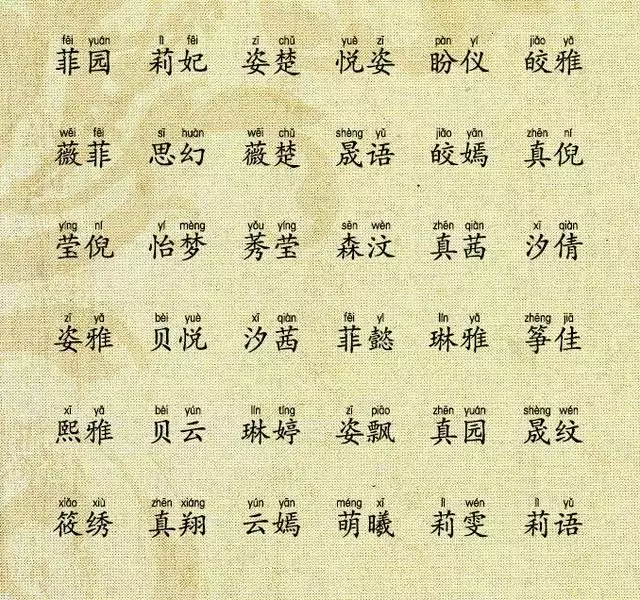 fēi yuán lì fēi zī chǔ yuè zī pàn yí jiǎo yǎ
菲园 莉妃 姿楚 悦姿 盼仪 皎雅
wēi fēi sī huàn wēi chǔ shèng yǔ jiǎo yān zhēn ní
薇菲 思幻 薇楚 晟语 皎嫣 真倪
yíng ní yí mèng yǒu yíng sēn wèn zhēn qiàn xī qiàn
莹倪 怡梦 莠莹 森汶 真茜 汐倩
zī yǎ bèi yuè xī qiàn fēi yì lín yǎ zhēng jiā
姿雅 贝悦 汐茜 菲懿 琳雅 筝佳
xī yǎ bèi yún lín tíng zī piāo zhēn yuán shèng wén
熙雅 贝云 琳婷 姿飘 真园 晟纹
xiǎo xiù zhēn xiáng yún yān méng xī lì wén lì yǔ
筱绣 真翔 云嫣 萌曦 莉雯 莉语